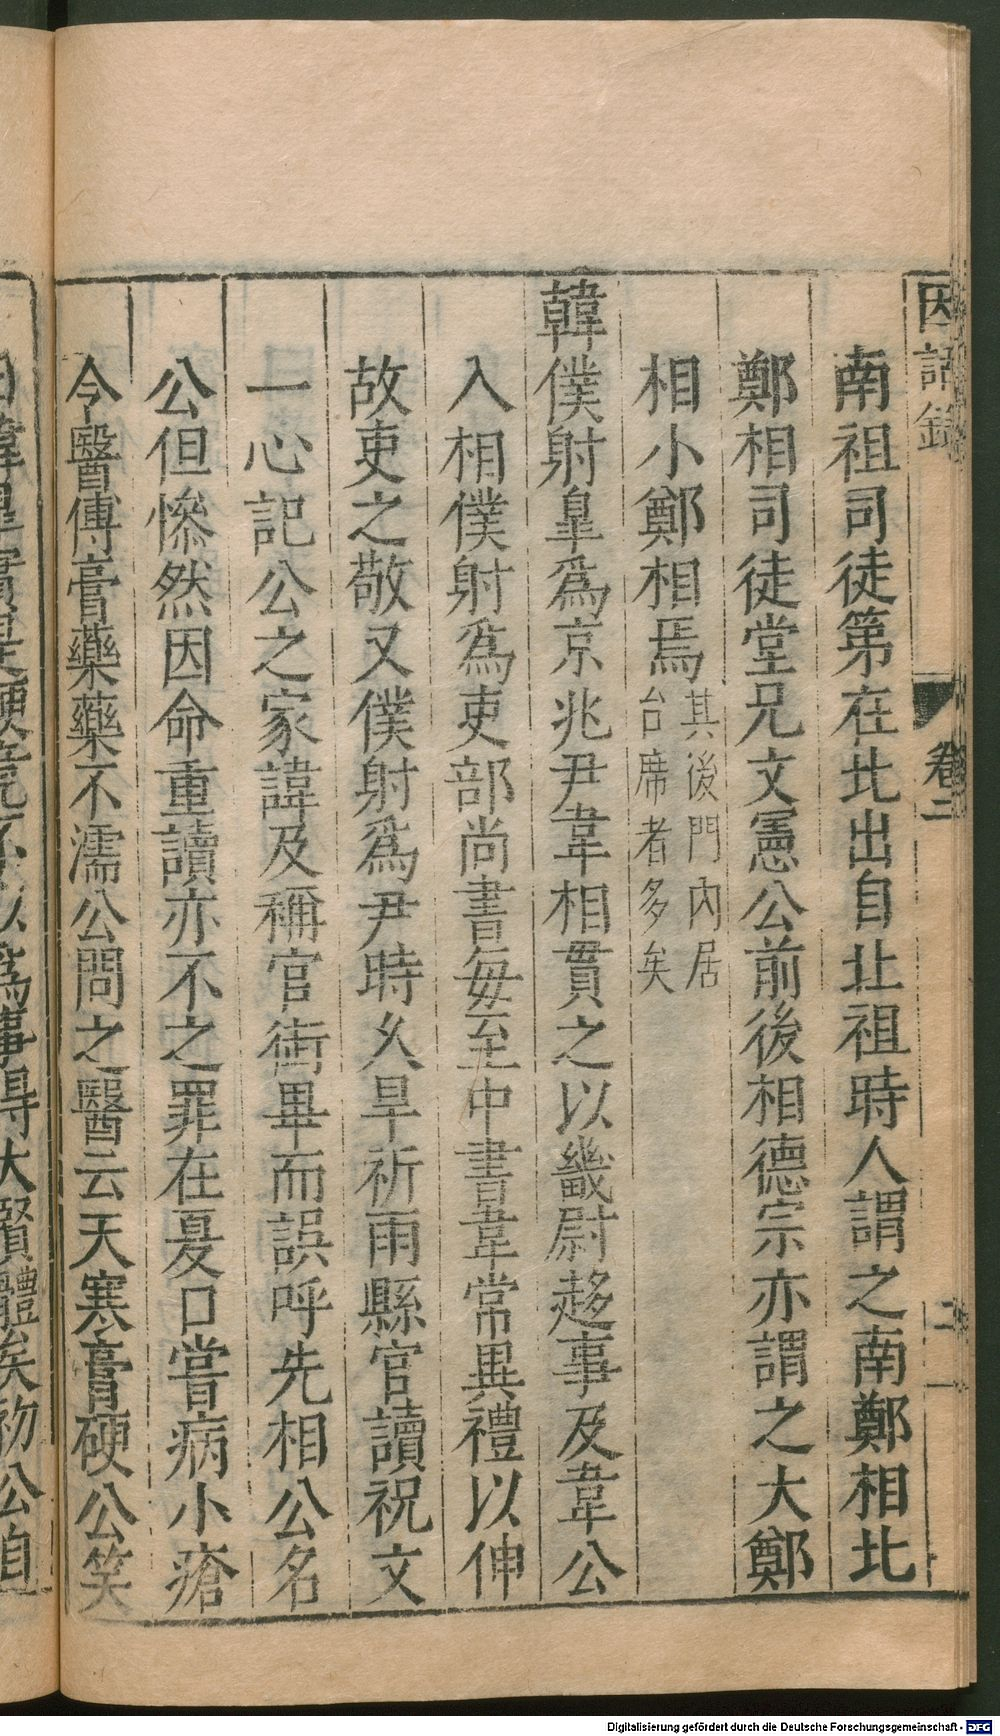 因話錄
卷二
二
南祖司徒第在北出自北祖時人謂之南鄭相北
鄭相司徒堂兄文憲公前後相德宗亦謂之大鄭
相小鄭相焉其後門內居
台席者多矣
韓僕射皐為京兆尹韋相貫之以畿尉趍事及韋公
入相僕射為吏部尚書每至中書韋常異禮以伸
故吏之敬又僕射為尹時久旱祈雨縣官讀祝文
一心記公之家諱及稱官銜畢而誤呼先相公名
公但慘然因命重讀亦不之罪在夏口嘗病小瘡
令醫傅膏藥藥不濡公問之醫云天寒膏硬公笑
曰韓皐實是硬竟不以為事得大賢體矣初公自
Digitalisierung gefördert durch die Deutsche Forschungsgemeinschaft - DFG